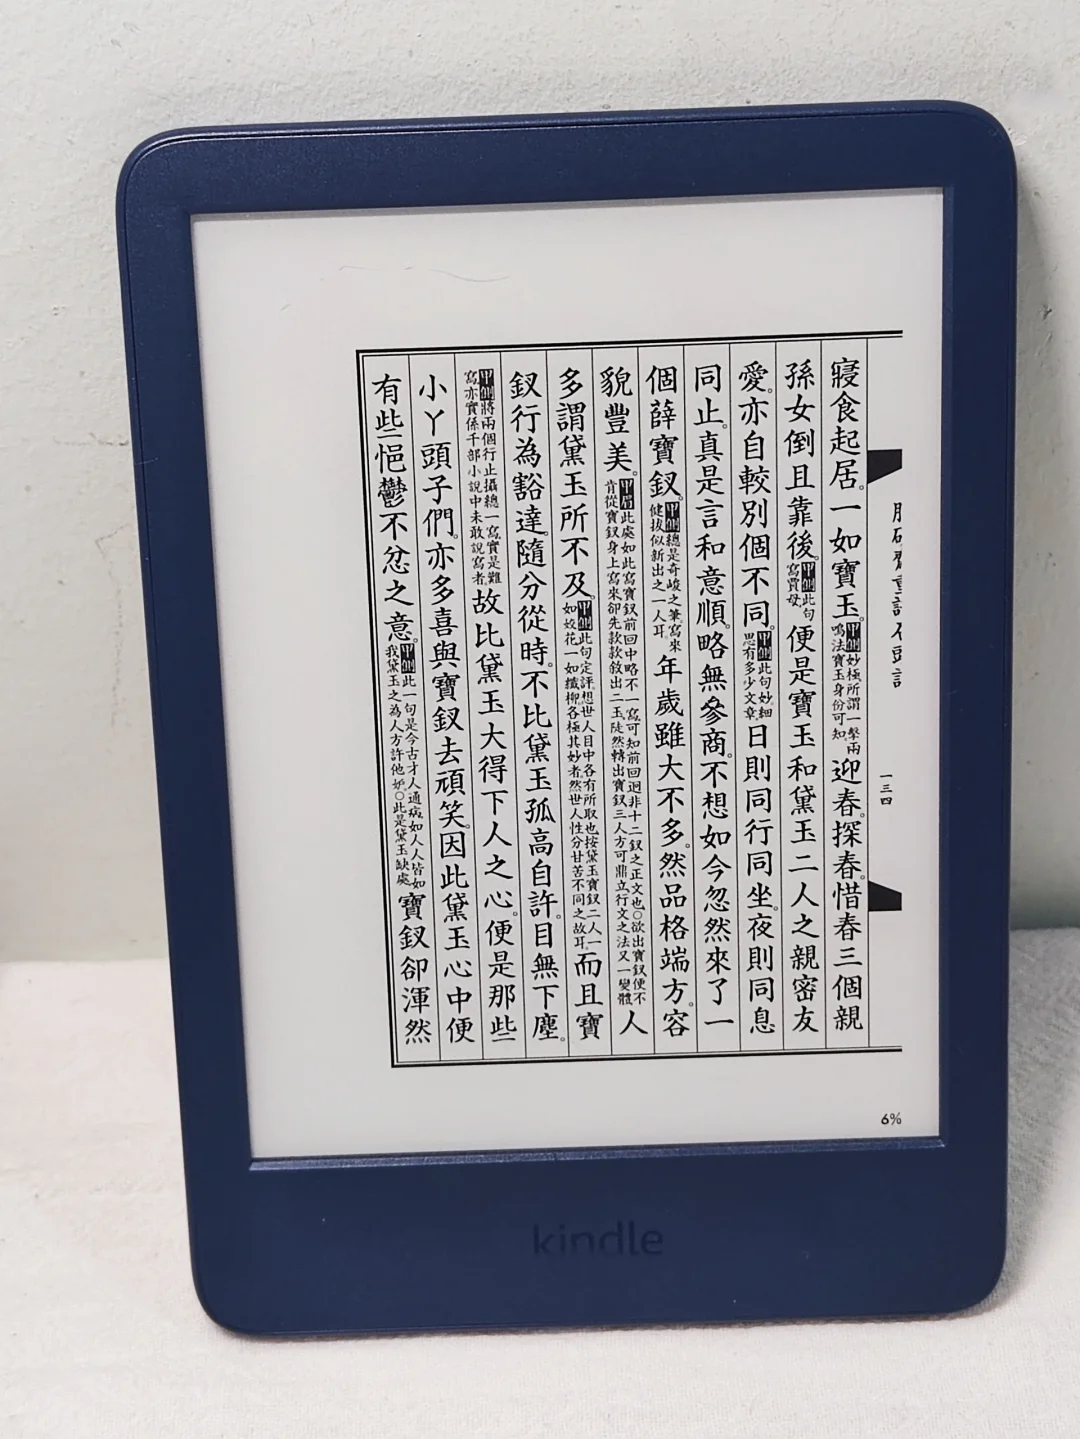 脂硯齋重評石頭記
一三四
寢食起居。一如寶玉。甲側妙極所謂一擊兩鳴法寶玉身份可知。迎春。探春。惜春三個親
孫女倒且靠後。甲側此句寫賈母。便是寶玉和黛玉二人之親密友
愛。亦自較別個不同。甲側此句妙細思有多少文章。日則同行同坐。夜則同息
同止。真是言和意順。略無參商。不想如今忽然來了一
個薛寶釵。甲側總是奇峻之筆。寫來健拔似新出之一人耳。年歲雖大不多。然品格端方。容
貌豐美。甲眉此處如此寫寶釵前回中略不一寫可知前回迥非十二釵之正文也○欲出寶釵便不肯從寶釵身上寫來卻先款款敘出二玉陡然轉出寶釵三人方可鼎立行文之法又一變體人
多謂黛玉所不及。甲側此句定評想世人目中各有所取也按黛玉寶釵二人一如姣花一如纖柳各極其妙者然世人性分甘苦不同之故耳。而且寶
釵行為豁達。隨分從時。不比黛玉孤高自許。目無下塵。
甲側將兩個行止攝總一寫實是難寫亦實係千部小說中未敢說寫者。故比黛玉大得下人之心。便是那些
小丫頭子們。亦多喜與寶釵去頑笑。因此黛玉心中便
有些悒鬱不忿之意。甲側此一句是今古才人通病如人人皆如我黛玉之為人方許他妒○此是黛玉缺處寶釵卻渾然
6%
kindle